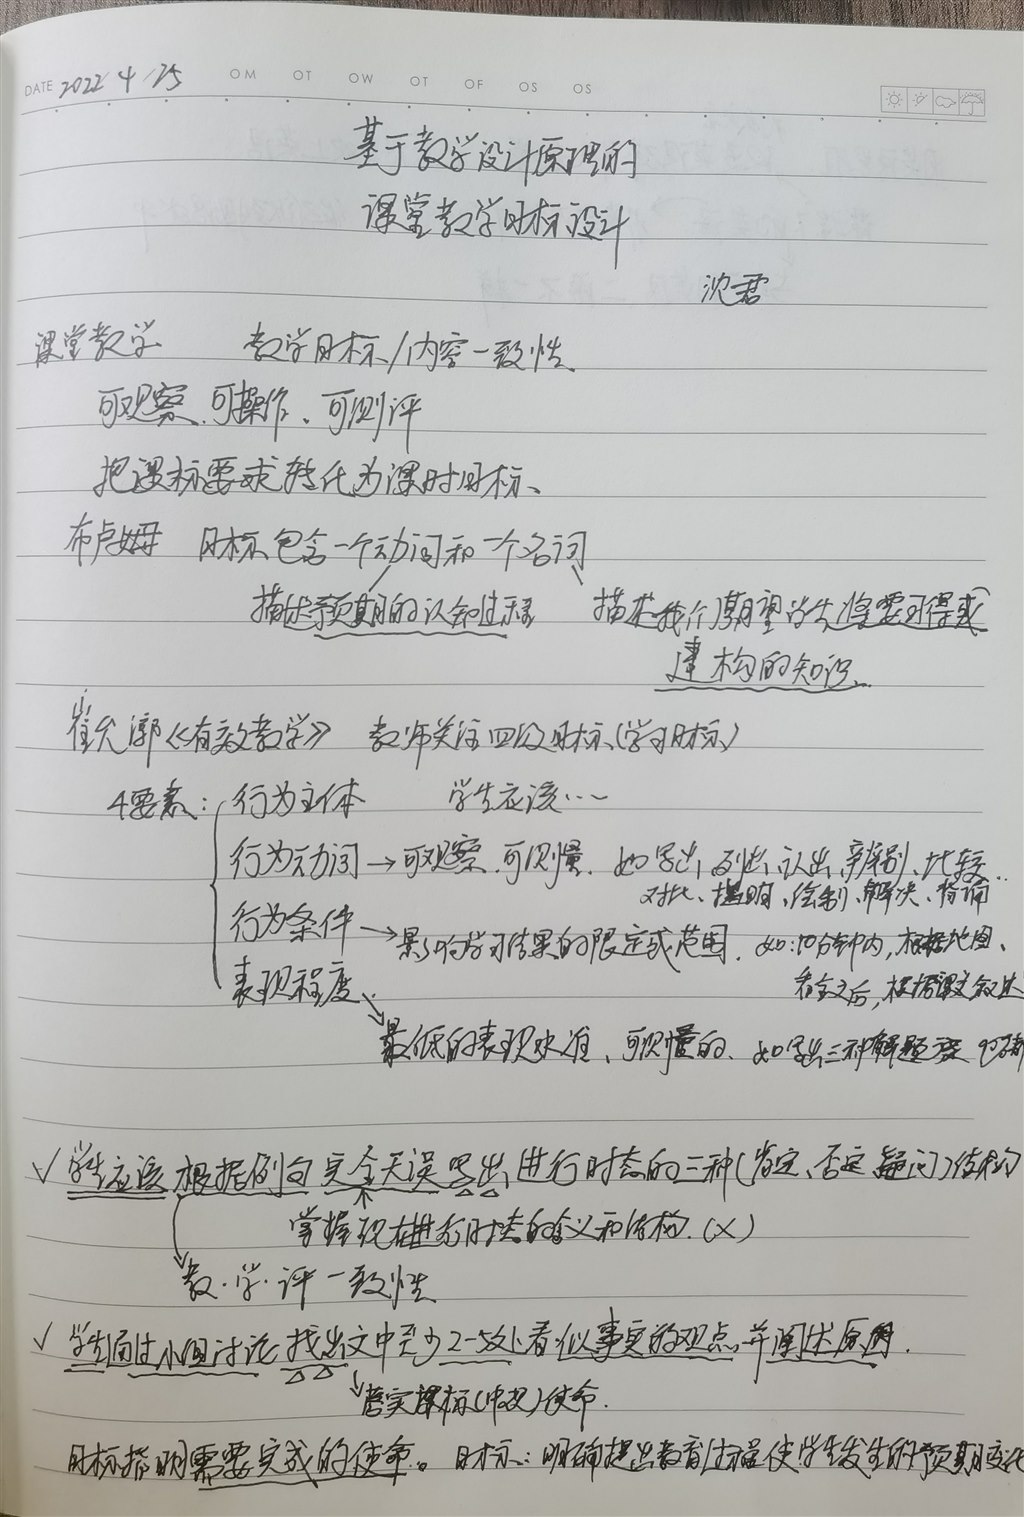 DATE 2022 4/25 OM OT OW OT OF OS OS
基于教学设计原理的
课堂教学目标设计
沈君
课堂教学 教学目标/内容一致性
可观察、可操作、可测评
把课标要求转化为课时目标、
布卢姆 目标包含一个动词和一个名词
描述预期的认知过程 描述我们期望学生将要习得或
建构的知识、
崔允漷《有效教学》 教师关注四级目标(学习目标)
4要素: 行为主体 学生应该…
行为动词→可观察、可测量、如写出、列出、认出、辨别、比较、
对比、指明、绘制、解决、背诵
行为条件→影响学习结果的限定或范围、如:10分钟内,根据地图、
看全文后,根据课文叙述
表现程度、
最低的表现水准、可测量的、如写出三种解题方案
√ 学生应该根据例句完全无误写出进行时态的三种(肯定、否定、疑问)结构
掌握现在进行时态的含义和结构.(×)
教·学·评一致性
√ 学生通过小组讨论找出文中至少2-5处看似事实的观点,并阐述原因.
落实课标()使命.
目标指明需要完成的使命。目标:明确提出教育过程使学生发生的预期变化